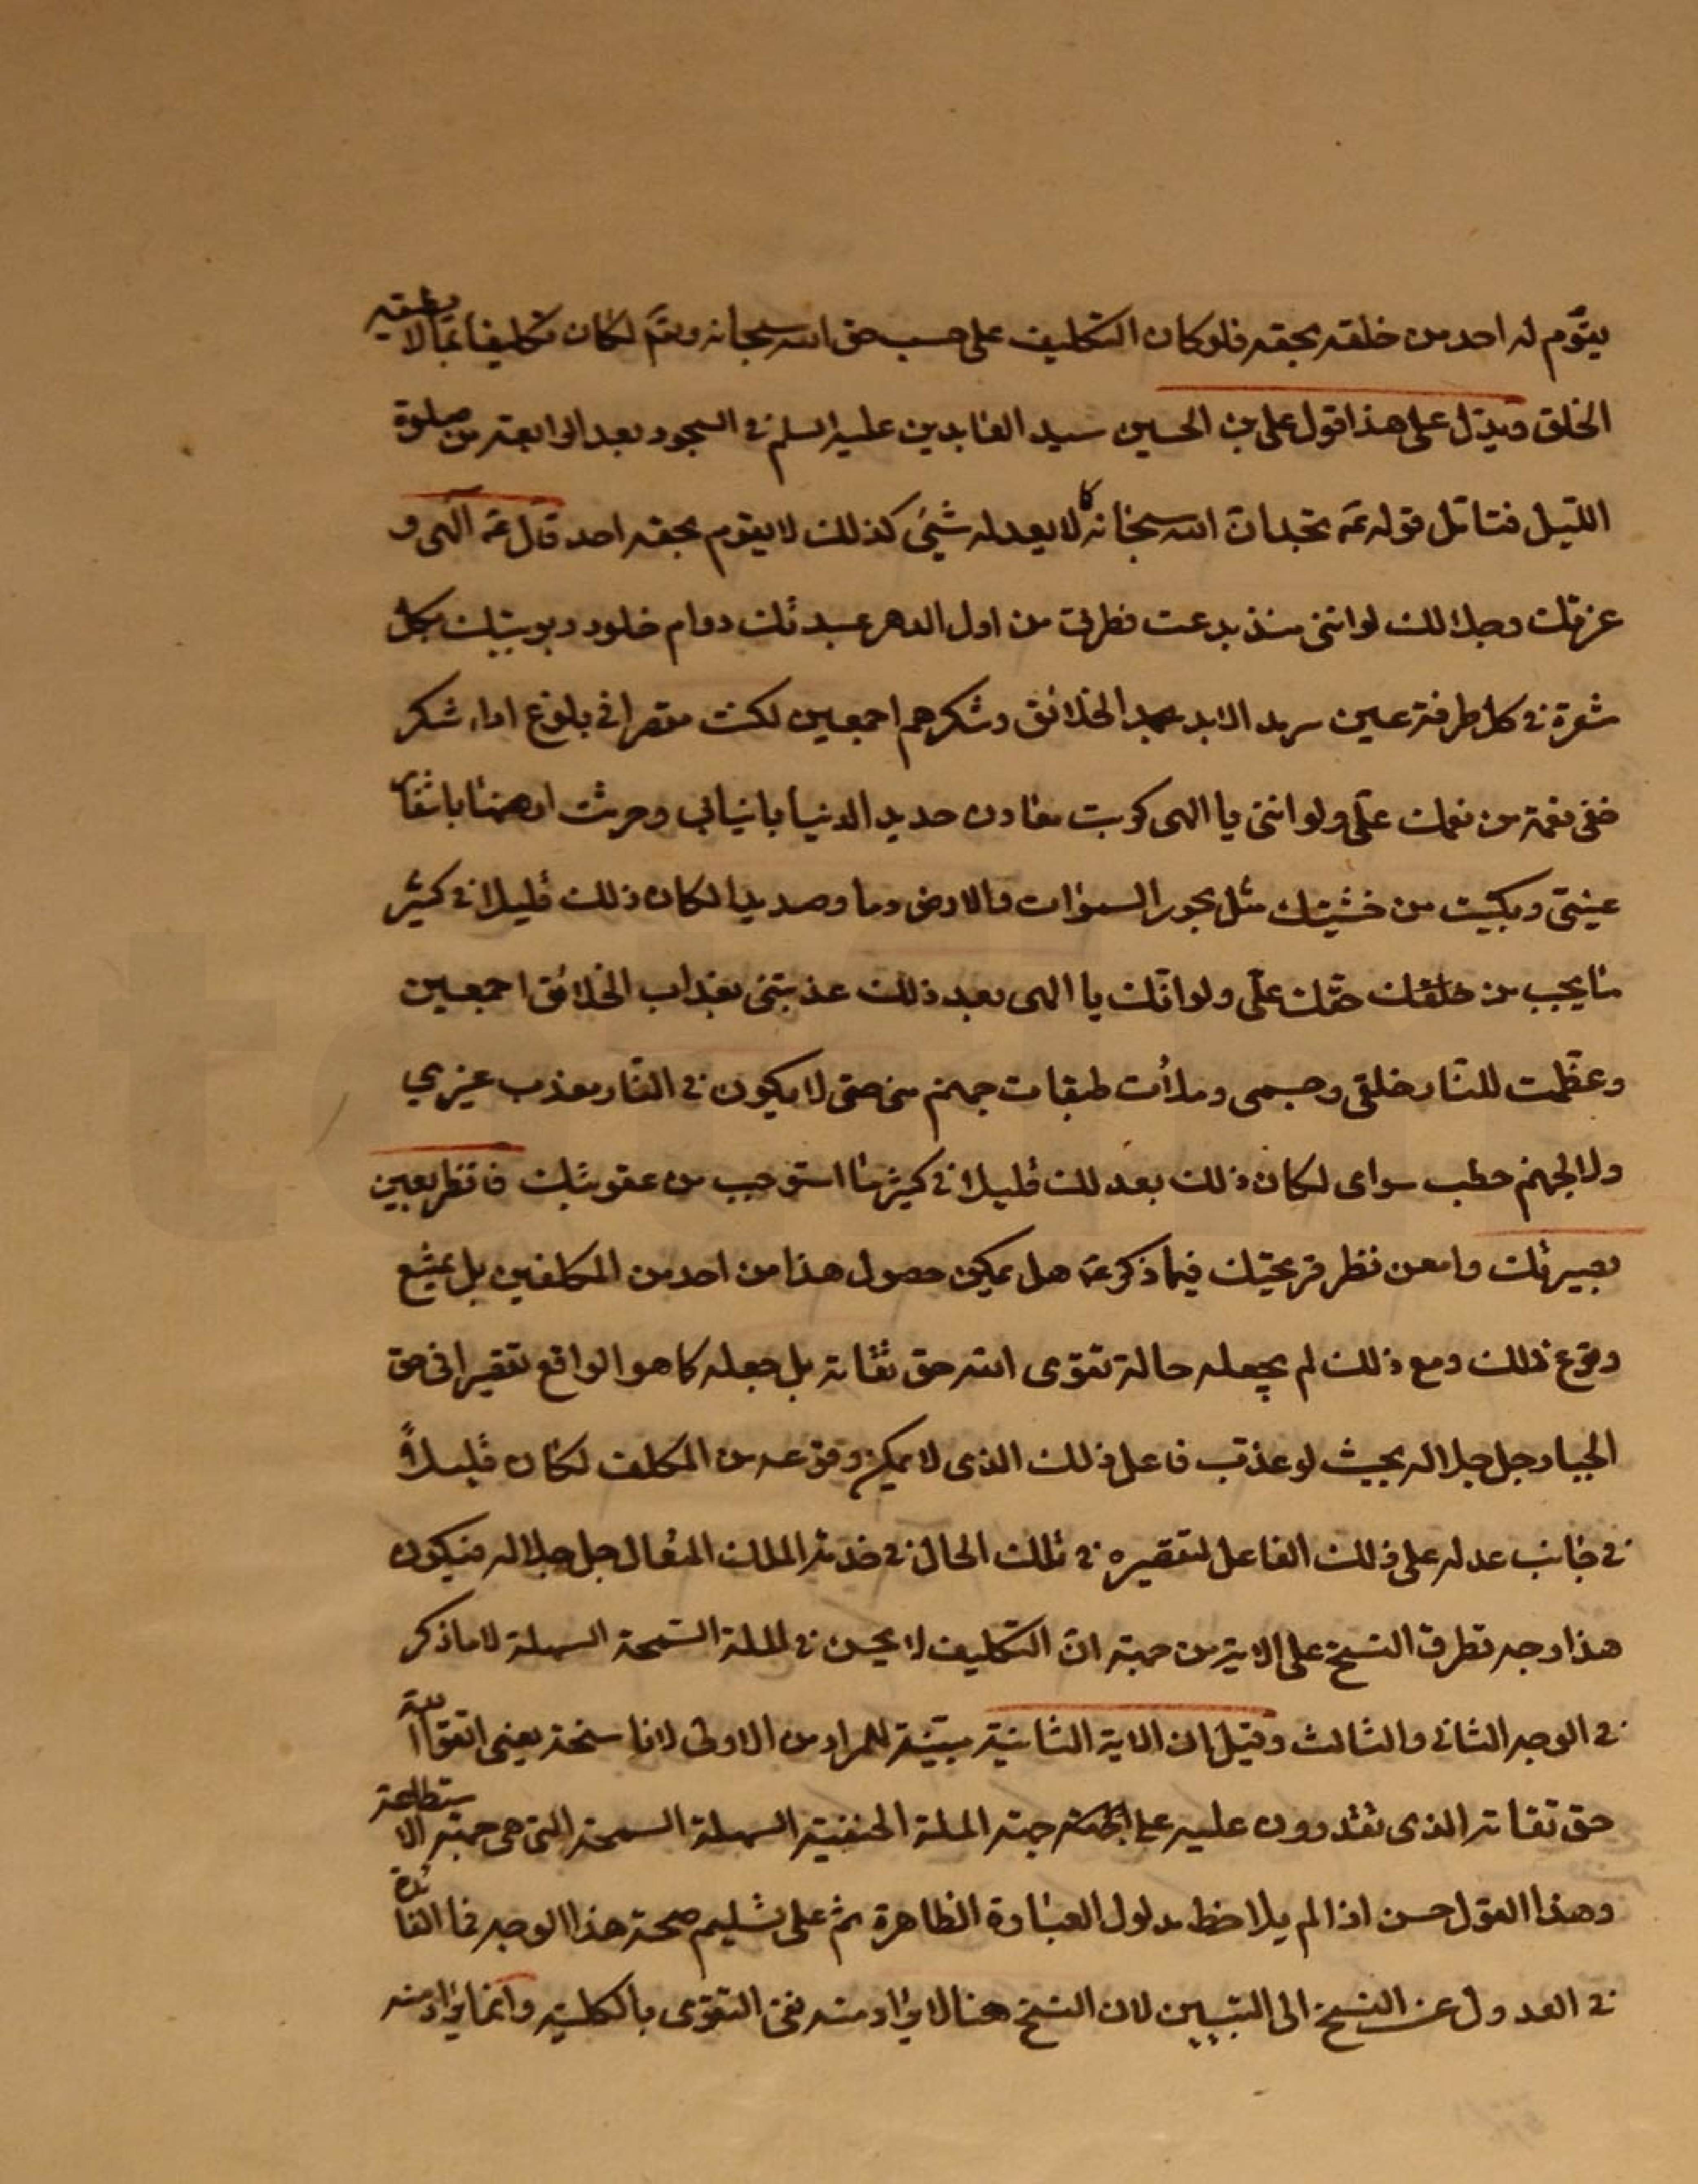 يقوم له احد من خلقه بحقه فلو كان التكليف على حسب حق الله سبحانه وتعم لكان تكليفا بما لا يطيقه
الخلق ويدل على هذا قول على بن الحسين سيد العابدين عليه السلم في السجود بعد الرابعة من صلوة
الليل فتامل قوله عم تجد ان الله سبحانه كما لا يعد له شيئ كذلك لا يقوم بحقه احد قال عم الهى و
عزتك وجلالك لو اننى منذ بدعت فطرتى من اول الدهر عبدتك دوام خلود ربوبيتك بكل
شعرة في كل طرفة عين سرمد الابد بحمد الخلائق وشكرهم اجمعين لكنت مقصرا في بلوغ اداء شكر
خفى نعمة من نعمك على ولو اننى يا الهى كربت معادن حديد الدنيا بانيابى وحرثت ارضها باشفار
عينى وبكيت من خشيتك مثل بحور السموات والارض دما وصديدا لكان ذلك قليلا في كثير
ما يجب من حقك على ولو انك يا الهى بعد ذلك عذبتنى بعذاب الخلائق اجمعين
وعظمت للنار خلقى وجسمى وملأت طبقات جهنم منى حتى لا يكون في النار معذب غيري
ولا لجهنم حطب سواى لكان ذلك بعدلك قليلا في كثير ما استوجب من عقوبتك فانظر بعين
بصيرتك وامعن نظر قريحتك فيما ذكر عم هل يمكن حصول هذا من احد من المكلفين بل يمتنع
وقوع ذلك ومع ذلك لم يجعله حالة تقوى الله حق تقاته بل جعله كما هو الواقع تقصيرا في حق
الجبار جل جلاله بحيث لو عذب فاعل ذلك الذى لا يمكن وقوعه من المكلف لكان قليلاً
في جانب عدله على ذلك الفاعل لتقصيره في تلك الحال في خدمة الملك المتعال جل جلاله فيكون
هذا وجه تطرق النسخ على الاية من جهة ان التكليف لا يحسن في الملة السمحة السهلة لا ما ذكر
في الوجه الثانى والثالث وقيل ان الاية الثانية مبينة للمراد من الاولى لا ناسخة يعنى اتقوا الله
حق تقاته الذى تقدرون عليه على جهة الملة الحنفية السهلة السمحة التى هى جهة الاستطاعة
وهذا القول حسن اذا لم يلاحظ مدلول العبارة الظاهرة ثم على تسليم صحة هذا الوجه فما الفائدة
في العدول عن النسخ الى التبيين لان النسخ هنا لا يراد منه نفى التقوى بالكلية وانما يراد منه